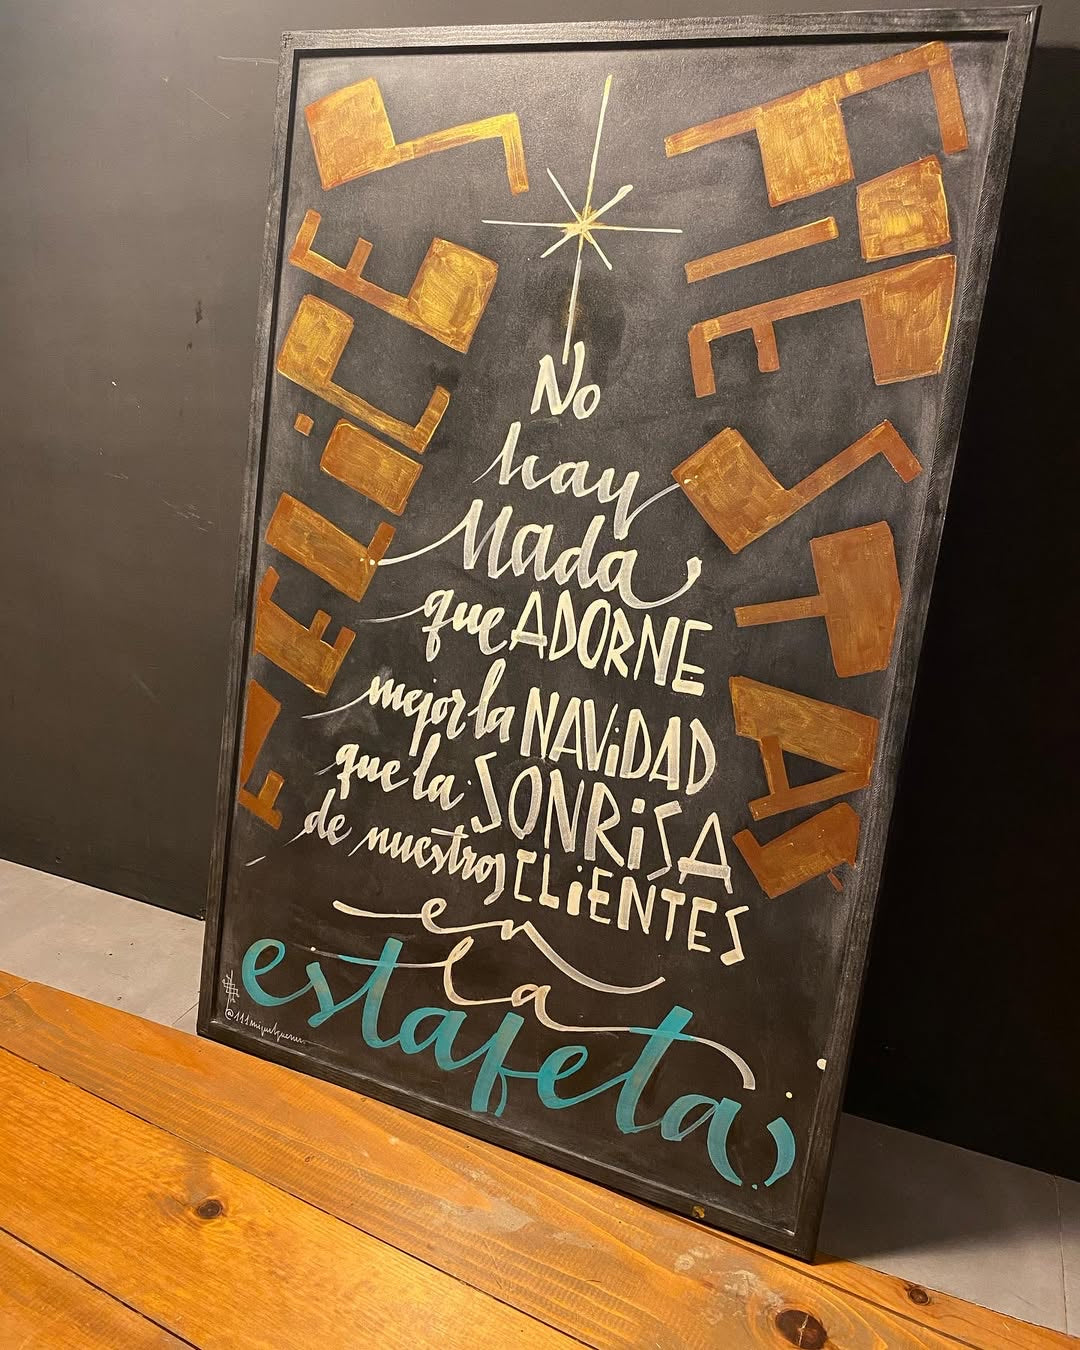 FELiCES
FIESTAS
No
hay
Nada
que ADORNE
mejor la NAViDAD
que la SONRiSA
de nuestros CLiENTES
en
la
estafeta